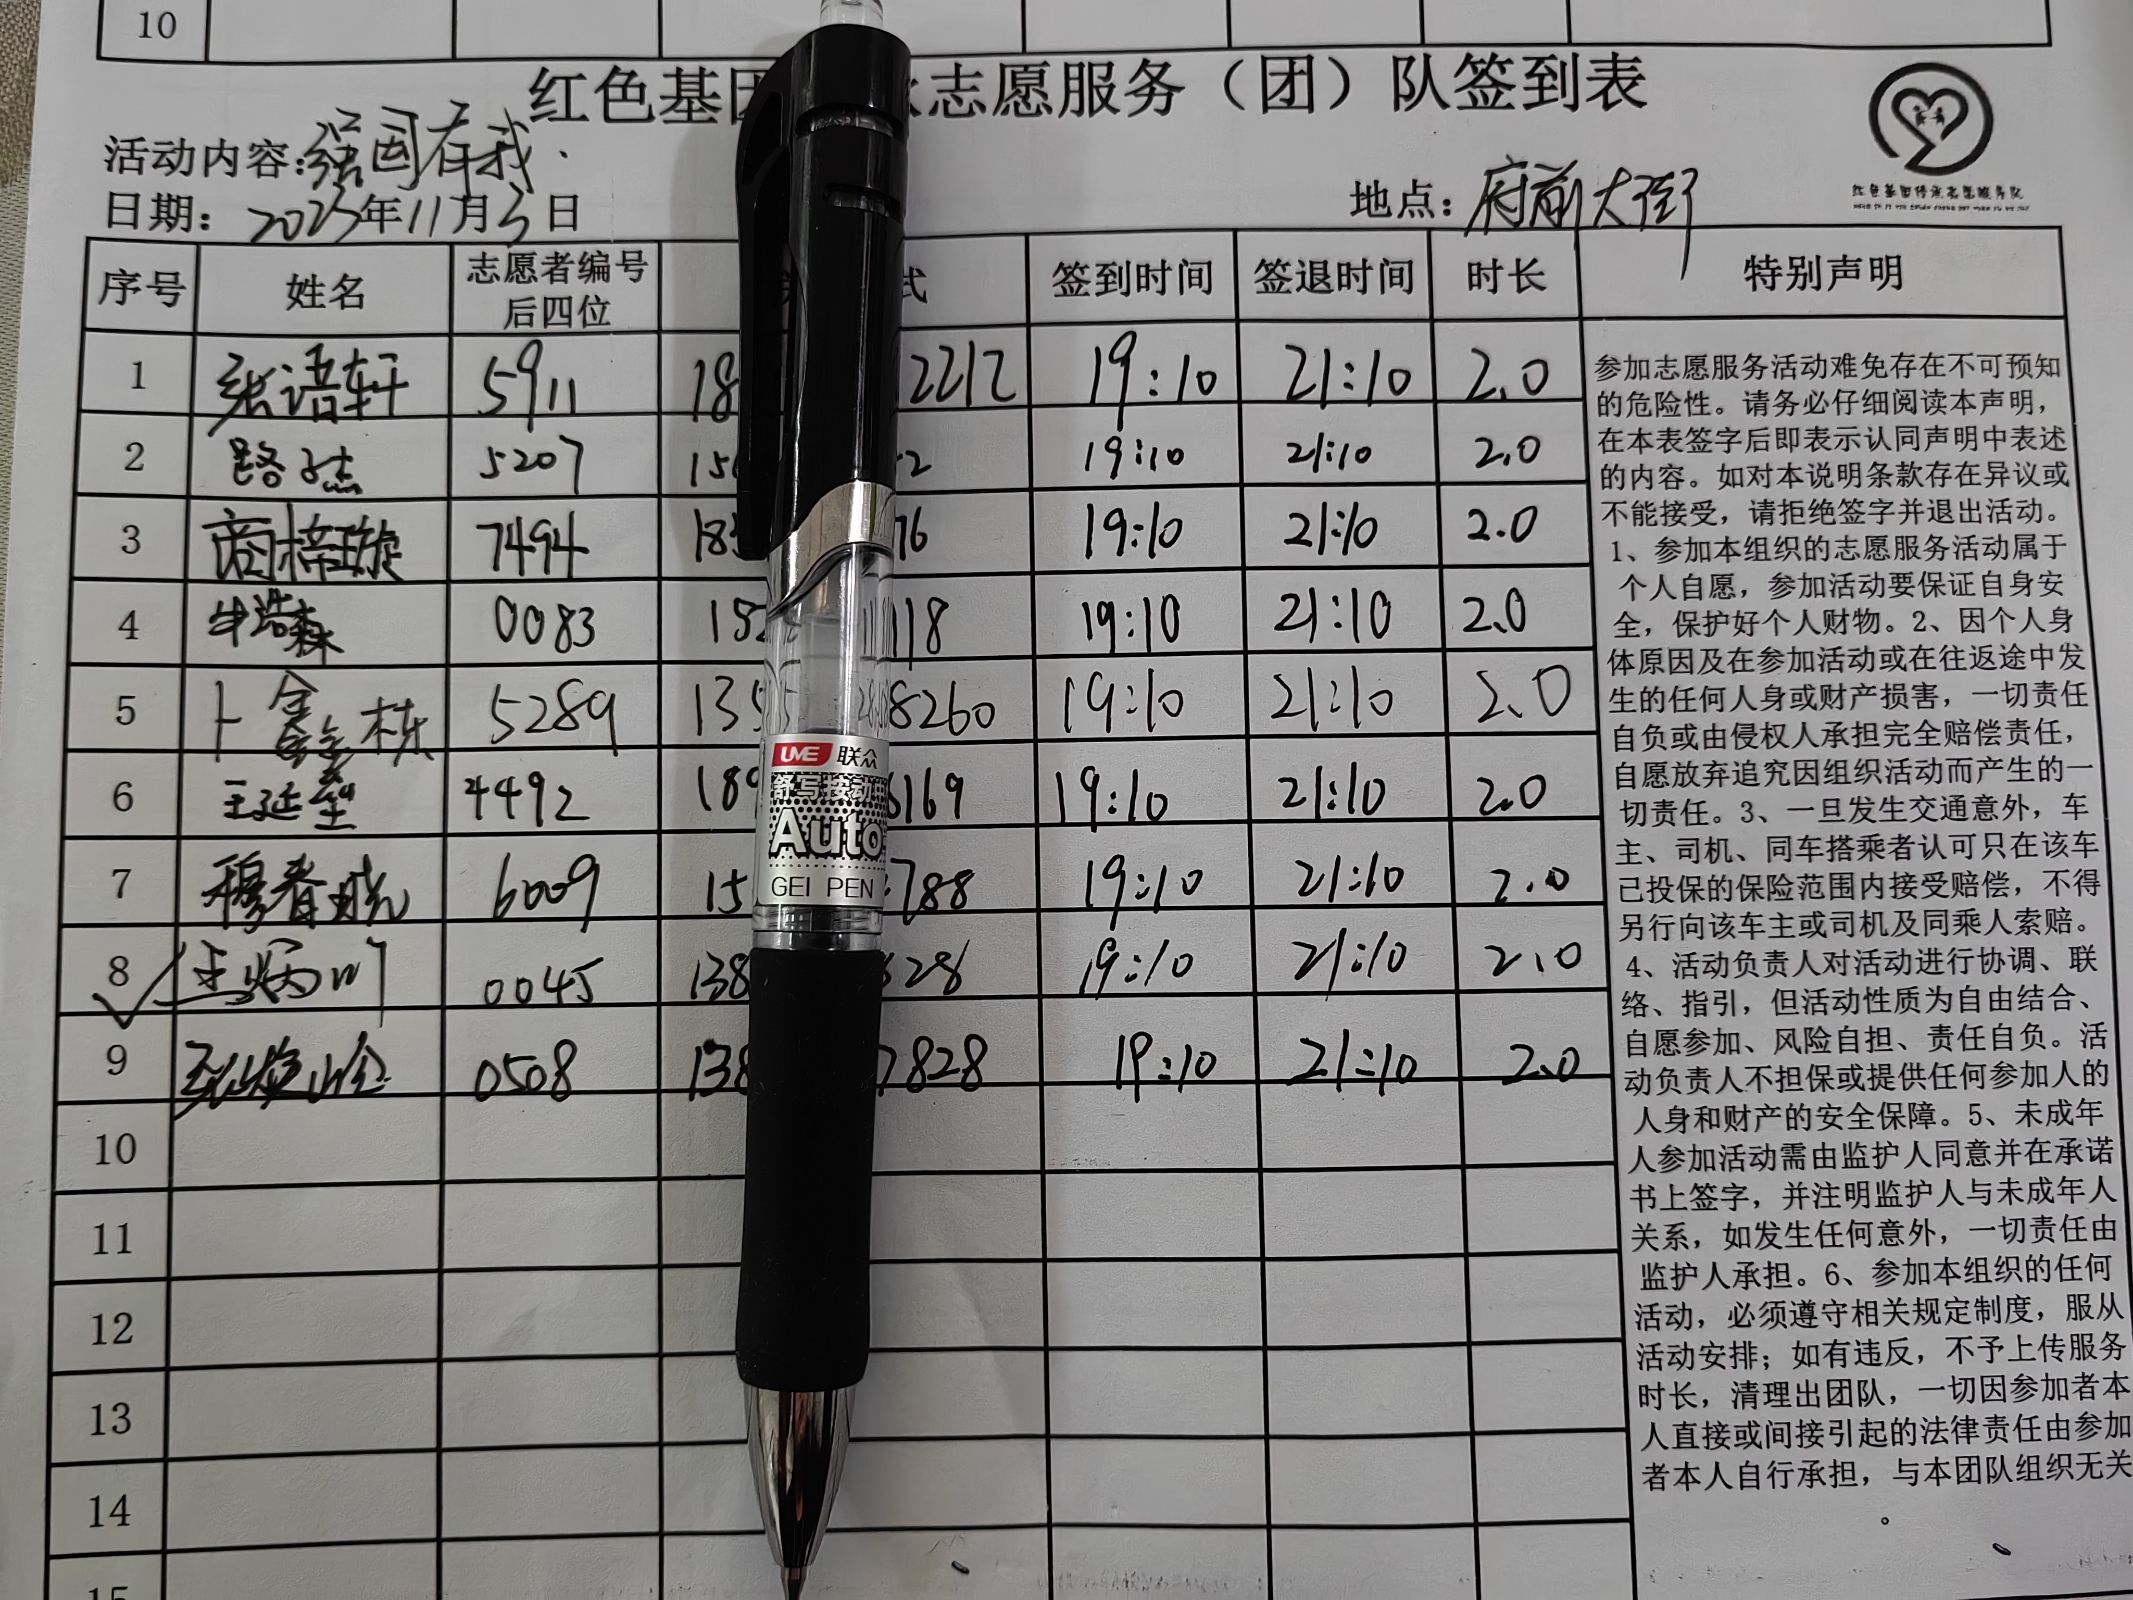 10
红色基 志愿服务（团）队签到表
活动内容:强国有我
日期: 2023年11月3日 地点: 府前大街
序号 姓名 志愿者编号后四位 式 签到时间 签退时间 时长 特别声明
1 张语轩 5911 18 2212 19:10 21:10 2.0
2 路杰 5207 15 2 19:10 21:10 2.0
3 商梓璇 7494 183 76 19:10 21:10 2.0
4 牛浩森 0083 152 118 19:10 21:10 2.0
5 卜鑫栋 5289 135 8260 19:10 21:10 2.0
6 王延 4492 189 169 19:10 21:10 2.0
7 穆春晓 6009 15 788 19:10 21:10 2.0
8 0045 138 28 19:10 21:10 2.0
9 0508 138 7828 19:10 21:10 2.0
10
11
12
13
14
15
参加志愿服务活动难免存在不可预知
的危险性。请务必仔细阅读本声明，
在本表签字后即表示认同声明中表述
的内容。如对本说明条款存在异议或
不能接受，请拒绝签字并退出活动。
1、参加本组织的志愿服务活动属于
个人自愿，参加活动要保证自身安
全，保护好个人财物。2、因个人身
体原因及在参加活动或在往返途中发
生的任何人身或财产损害，一切责任
自负或由侵权人承担完全赔偿责任，
自愿放弃追究因组织活动而产生的一
切责任。3、一旦发生交通意外，车
主、司机、同车搭乘者认可只在该车
已投保的保险范围内接受赔偿，不得
另行向该车主或司机及同乘人索赔。
4、活动负责人对活动进行协调、联
络、指引，但活动性质为自由结合、
自愿参加、风险自担、责任自负。活
动负责人不担保或提供任何参加人的
人身和财产的安全保障。5、未成年
人参加活动需由监护人同意并在承诺
书上签字，并注明监护人与未成年人
关系，如发生任何意外，一切责任由
监护人承担。6、参加本组织的任何
活动，必须遵守相关规定制度，服从
活动安排；如有违反，不予上传服务
时长，清理出团队，一切因参加者本
人直接或间接引起的法律责任由参加
者本人自行承担，与本团队组织无关
。
UME 联众
舒写按动
Auto
GEL PEN
红色基因传承志愿服务队